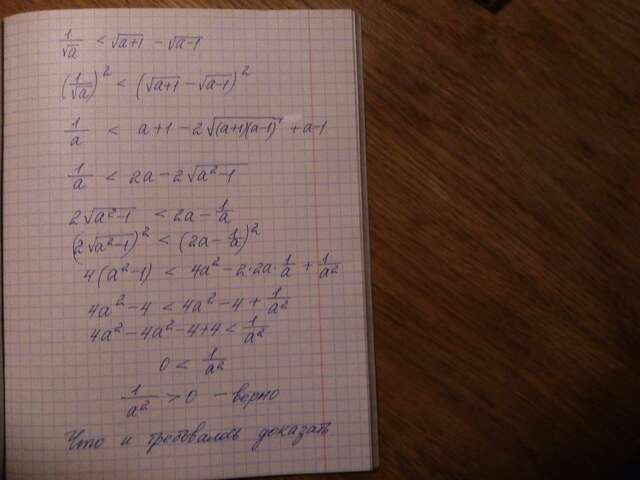 1/√a < √a+1 − √a−1
(1/√a)² < (√a+1 − √a−1)²
1/a < a+1−2√(a+1)(a−1) + a−1
1/a < 2a−2√a²−1
2√a²−1 < 2a−1/a
(2√a²−1)² < (2a−1/a)²
4(a²−1) < 4a²−2·2a·1/a + 1/a²
4a²−4 < 4a²−4+1/a²
4a²−4a²−4+4 < 1/a²
0 < 1/a²
1/a² > 0 − верно
Что и требовалось доказать